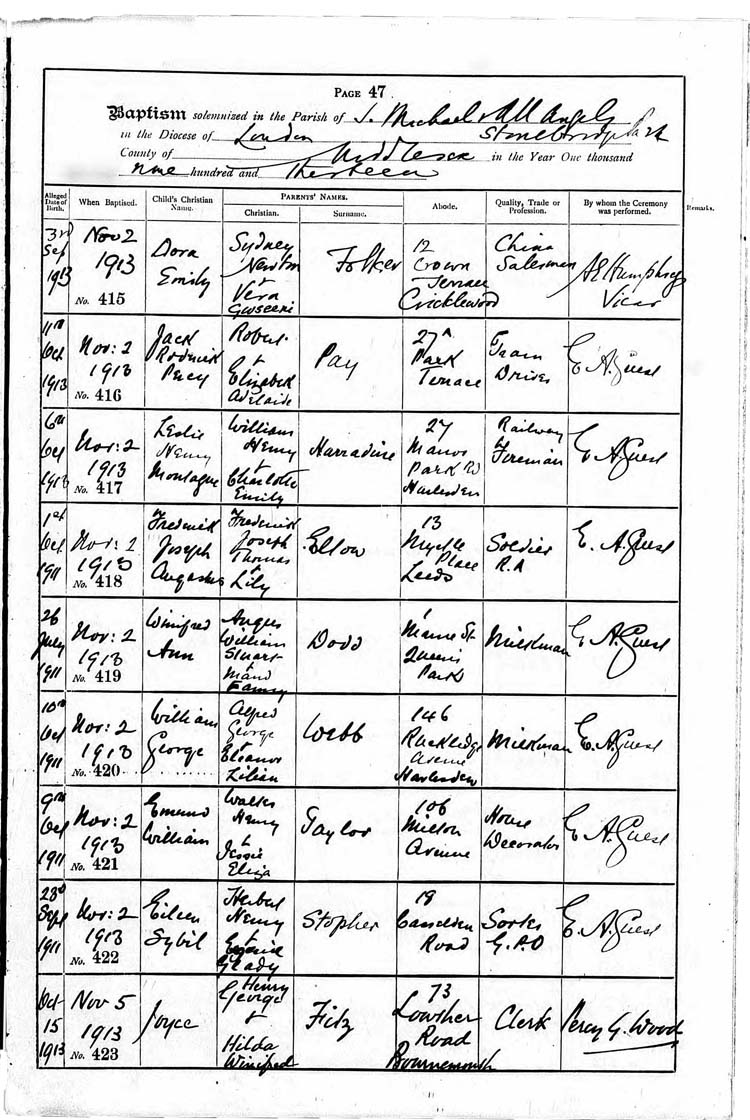 PAGE 47
Baptism solemnized in the Parish of S. Michael & All Angels
Stonebridge Park
in the Diocese of London
County of Middlesex in the Year One thousand
nine hundred and Thirteen
Alleged Date of Birth. When Baptised. Child's Christian Name. PARENTS' NAMES. Christian. Surname. Abode. Quality, Trade or Profession. By whom the Ceremony was performed. Remarks.
3rd Sep 1913 Nov 2 1913 No. 415 Dora Emily Sydney Newton + Vera Folker 12 Crown Terrace Cricklewood China Salesman A E Humphreys Vicar
11th Oct 1913 Nov: 2 1913 No. 416 Jack Roderick Percy Robert + Elizabeth Adelaide Pay 27A Park Terrace Tram Driver E. A. Guest
6th Oct 1913 Nov: 2 1913 No. 417 Leslie Henry Montague William Henry + Charlotte Emily Harradine 27 Manor Park Rd Harlesden Railway Fireman E. A. Guest
1st Oct 1911 Nov: 2 1913 No. 418 Frederick Joseph Augustus Frederick Joseph Thomas + Lily Ellow 13 Myrtle Place Leeds Soldier R.A E. A. Guest
26 July 1911 Nov: 2 1913 No. 419 Winifred Ann Angus William Stuart + Maud Fanny Dodd 1 St. Queens Park Milkman E. A. Guest
10th Oct 1911 Nov: 2 1913 No. 420 William George Alfred George + Eleanor Lilian Webb 146 Avenue Harlesden Milkman E. A. Guest
9th Oct 1911 Nov: 2 1913 No. 421 William Walter Henry + Jessie Eliza Taylor 106 Milton Avenue House Decorator E. A. Guest
28th Sept 1911 Nov: 2 1913 No. 422 Eileen Sybil Herbert Henry + Glady Stopher 18 Road Sorter G.P.O E. A. Guest
Oct 15 1913 Nov 5 1913 No. 423 Joyce Henry George + Hilda Winifred Fitz 73 Lowther Road Bournemouth Clerk Percy G. Wood